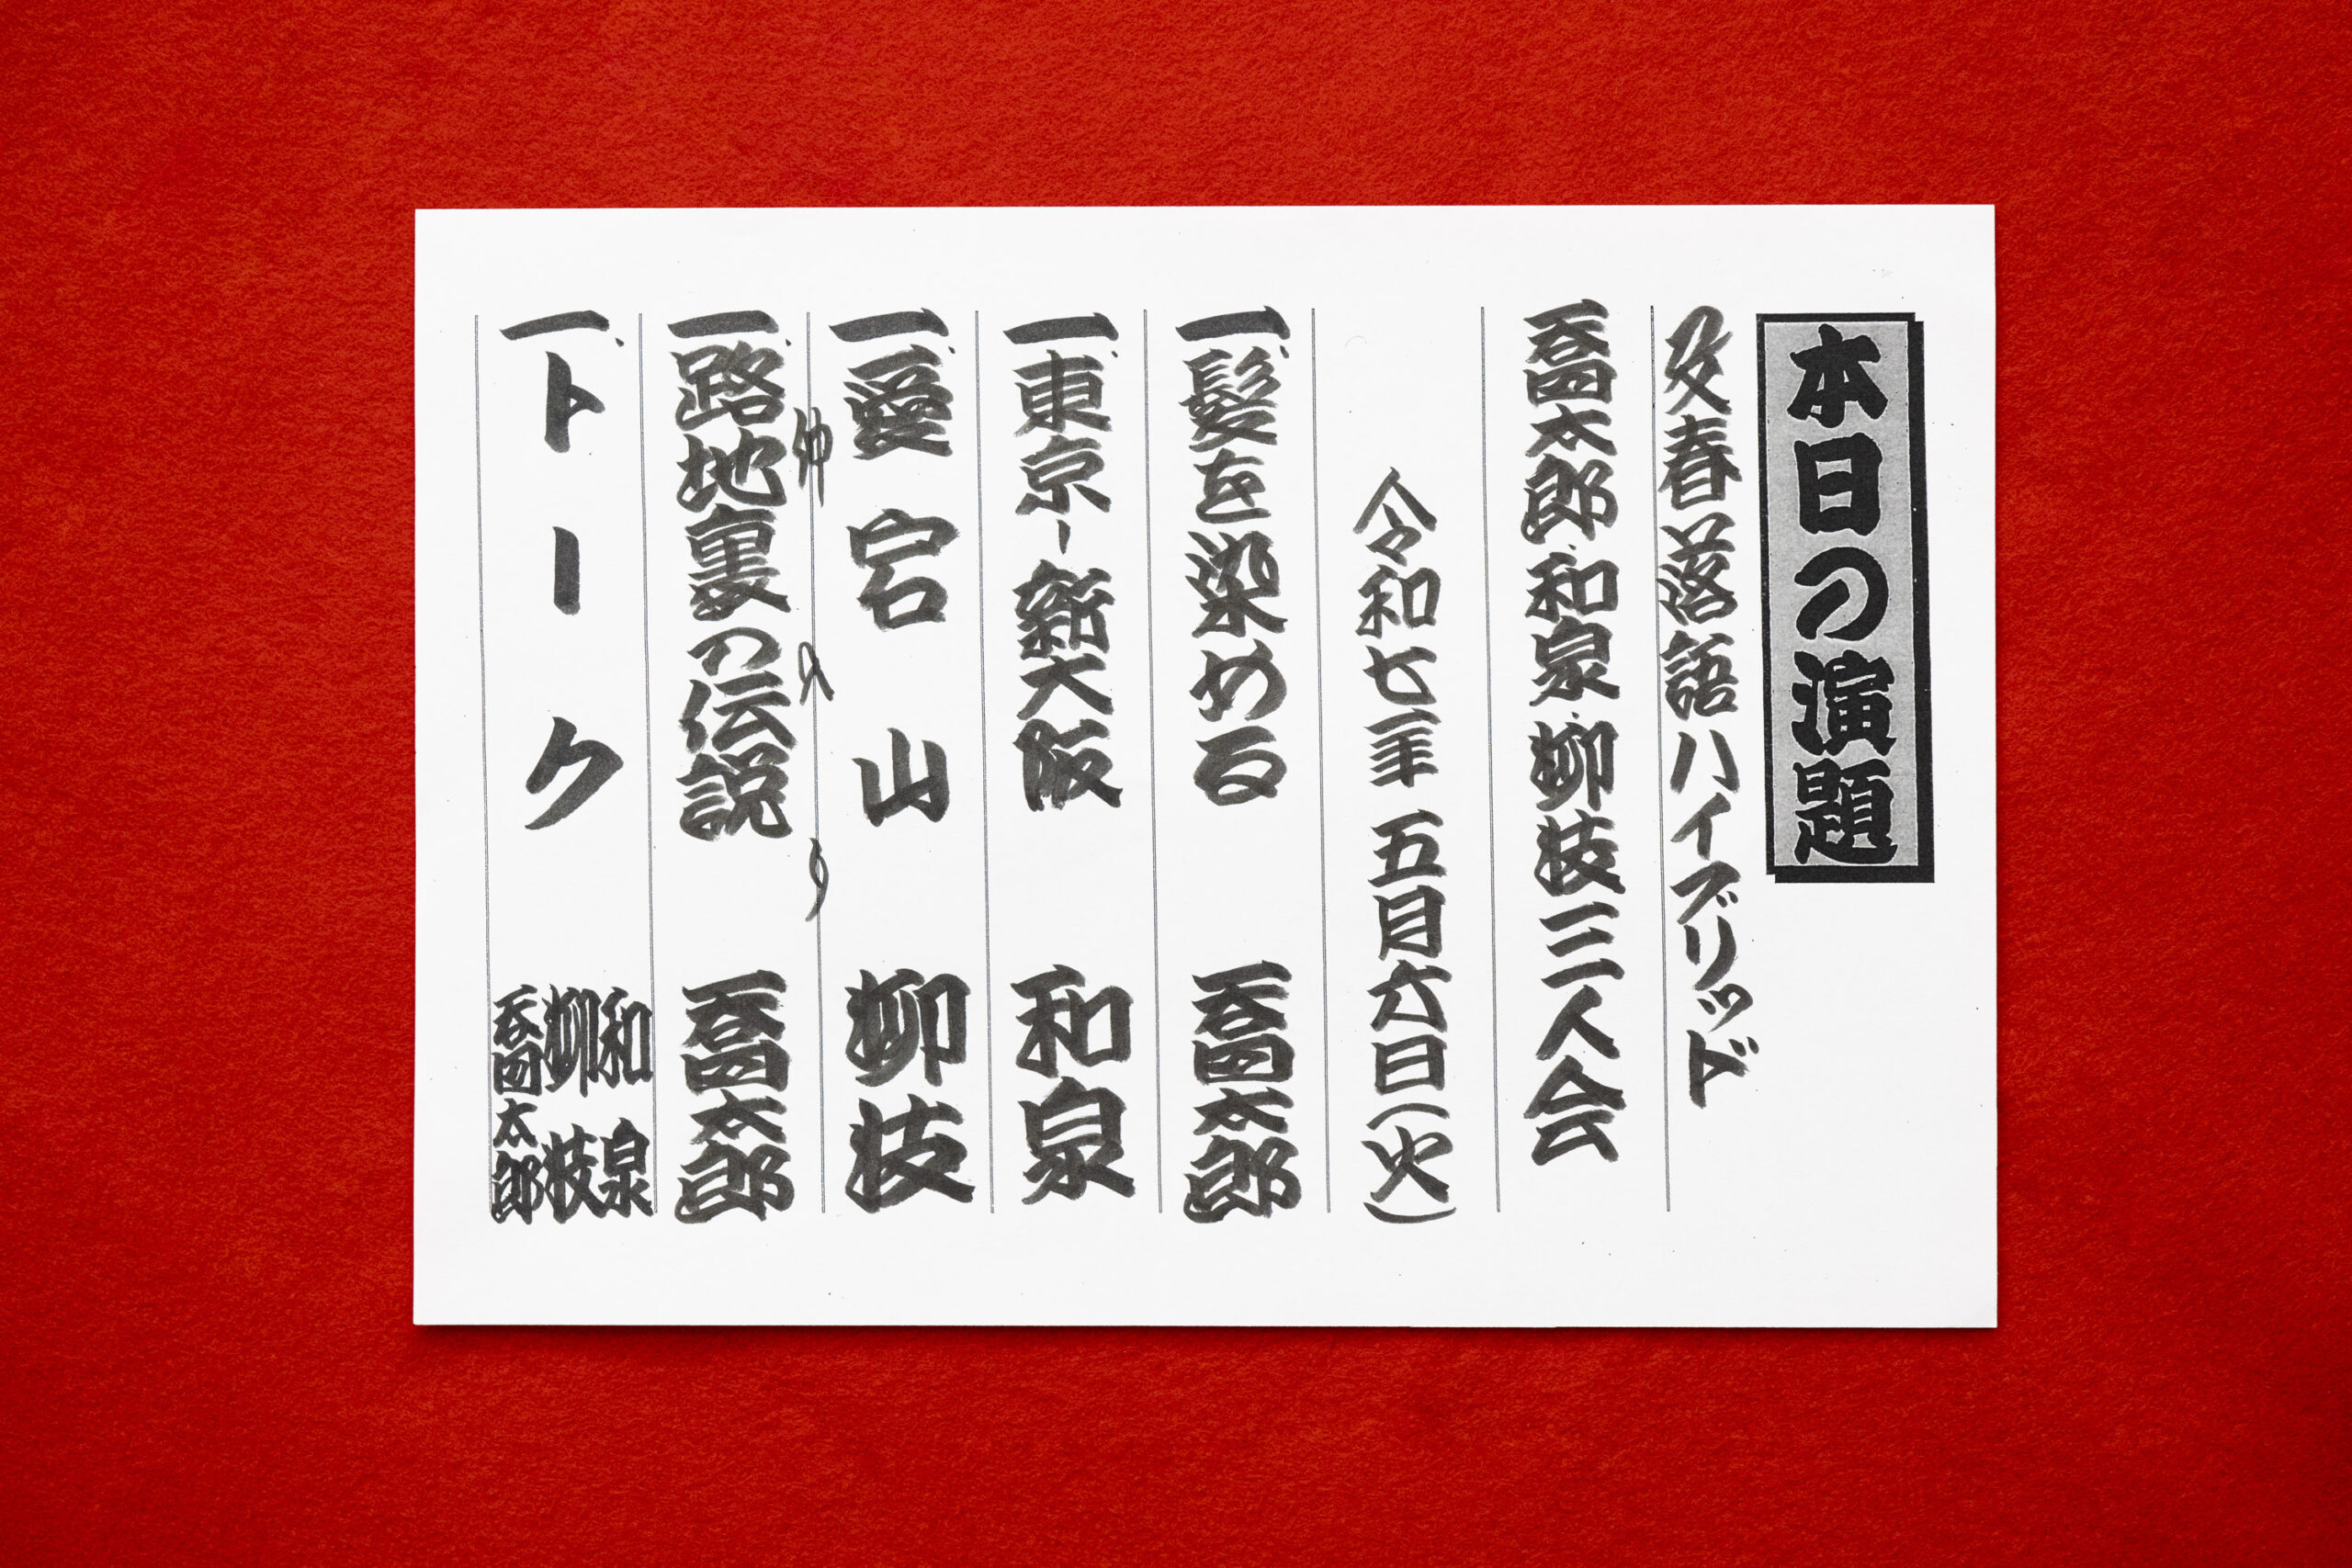 本日の演題
文春落語ハイブリッド
喬太郎・和泉・柳枝三人会
令和七年 五月六日(火)
一、髪を染める 喬太郎
一、東京ー新大阪 和泉
一、愛宕山 柳枝
仲入り
一、路地裏の伝説 喬太郎
一、トーク 和泉 柳枝 喬太郎